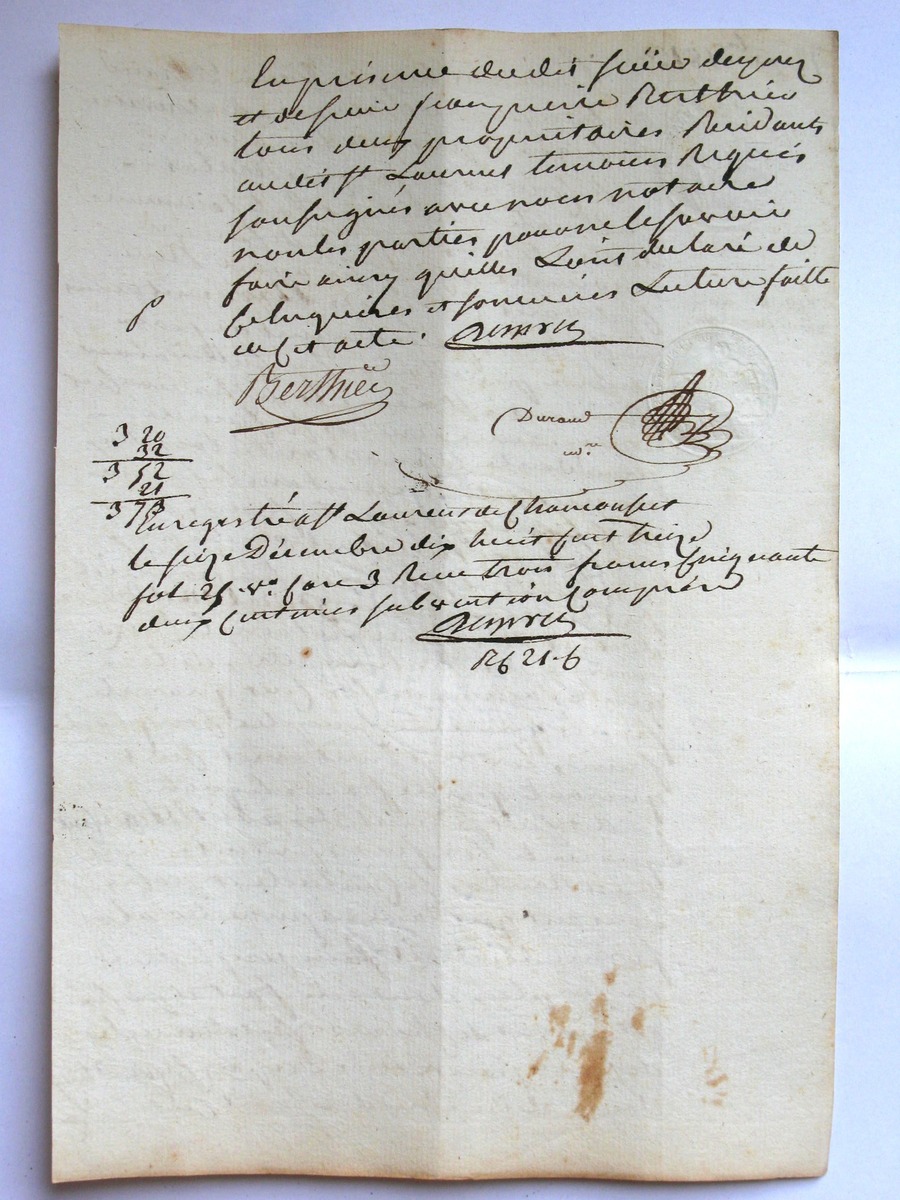 En présence dudit sieur
et de sieur Berthier
tous deux propriétaires Residants
audit st Laurent temoins Requis
soussignés avec nous notaire
non les parties pour ne le savoir
faire ainsy quelles L'ont déclaré de
ce Enquises et sommées Lecture faitte
de Cet acte.
Berthier
Durand
nore
3 20
32
3 52
21
3 73
Enregistré a st Laurent de Chamousset
le seize Décembre dix huit cent treize
fol 25 vo. Case 3 Recu trois francs Cinquante
deux Centimes subvention Comprise
R6 21-6